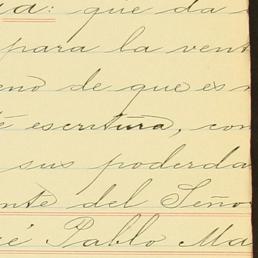 que da
para la vent
eno de que es
escritura, con
sus poderda
nte del Seño
é Pablo Ma